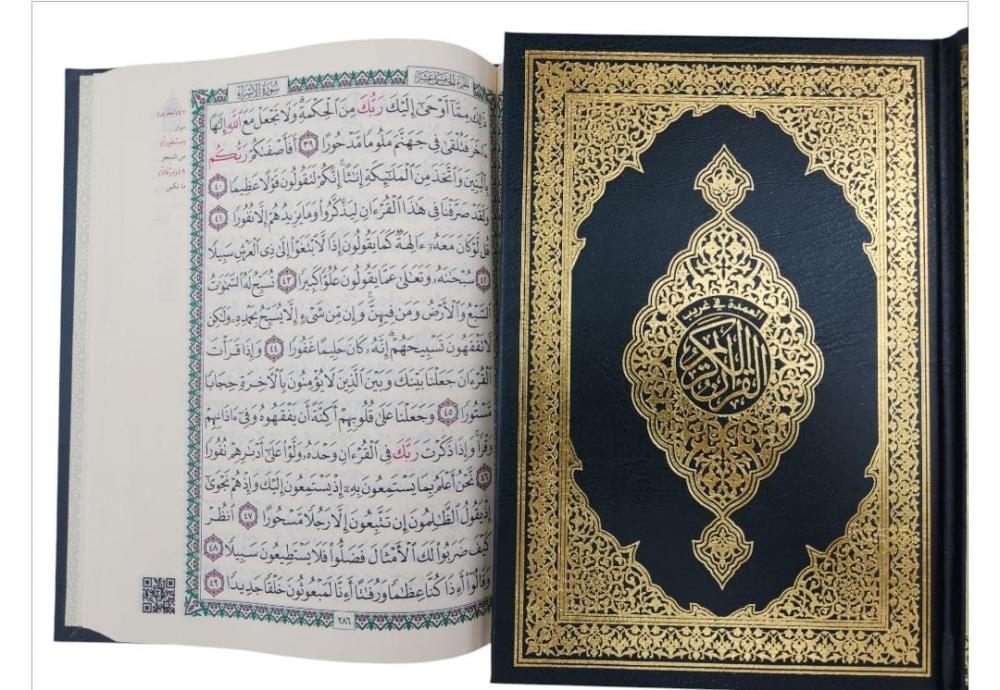 سُورَةُ الإِسْرَاء
الجُزْءُ الخَامِسَ عَشَرَ
ذَٰلِكَ مِمَّآ أَوْحَىٰٓ إِلَيْكَ رَبُّكَ مِنَ ٱلْحِكْمَةِۗ وَلَا تَجْعَلْ مَعَ ٱللَّهِ إِلَٰهًا
ءَاخَرَ فَتُلْقَىٰ فِى جَهَنَّمَ مَلُومًا مَّدْحُورًا ٣٩ أَفَأَصْفَىٰكُمْ رَبُّكُم
بِٱلْبَنِينَ وَٱتَّخَذَ مِنَ ٱلْمَلَٰٓئِكَةِ إِنَٰثًاۚ إِنَّكُمْ لَتَقُولُونَ قَوْلًا عَظِيمًا ٤٠
وَلَقَدْ صَرَّفْنَا فِى هَٰذَا ٱلْقُرْءَانِ لِيَذَّكَّرُوا۟ وَمَا يَزِيدُهُمْ إِلَّا نُفُورًا ٤١
قُل لَّوْ كَانَ مَعَهُۥٓ ءَالِهَةٌ كَمَا يَقُولُونَ إِذًا لَّٱبْتَغَوْا۟ إِلَىٰ ذِى ٱلْعَرْشِ سَبِيلًا
٤٢ سُبْحَٰنَهُۥ وَتَعَٰلَىٰ عَمَّا يَقُولُونَ عُلُوًّا كَبِيرًا ٤٣ تُسَبِّحُ لَهُ ٱلسَّمَٰوَٰتُ
ٱلسَّبْعُ وَٱلْأَرْضُ وَمَن فِيهِنَّۚ وَإِن مِّن شَىْءٍ إِلَّا يُسَبِّحُ بِحَمْدِهِۦ وَلَٰكِن
لَّا تَفْقَهُونَ تَسْبِيحَهُمْۗ إِنَّهُۥ كَانَ حَلِيمًا غَفُورًا ٤٤ وَإِذَا قَرَأْتَ
ٱلْقُرْءَانَ جَعَلْنَا بَيْنَكَ وَبَيْنَ ٱلَّذِينَ لَا يُؤْمِنُونَ بِٱلْءَاخِرَةِ حِجَابًا
مَّسْتُورًا ٤٥ وَجَعَلْنَا عَلَىٰ قُلُوبِهِمْ أَكِنَّةً أَن يَفْقَهُوهُ وَفِىٓ ءَاذَانِهِمْ
وَقْرًاۚ وَإِذَا ذَكَرْتَ رَبَّكَ فِى ٱلْقُرْءَانِ وَحْدَهُۥ وَلَّوْا۟ عَلَىٰٓ أَدْبَٰرِهِمْ نُفُورًا
٤٦ نَّحْنُ أَعْلَمُ بِمَا يَسْتَمِعُونَ بِهِۦٓ إِذْ يَسْتَمِعُونَ إِلَيْكَ وَإِذْ هُمْ نَجْوَىٰٓ
إِذْ يَقُولُ ٱلظَّٰلِمُونَ إِن تَتَّبِعُونَ إِلَّا رَجُلًا مَّسْحُورًا ٤٧ ٱنظُرْ
كَيْفَ ضَرَبُوا۟ لَكَ ٱلْأَمْثَالَ فَضَلُّوا۟ فَلَا يَسْتَطِيعُونَ سَبِيلًا ٤٨
وَقَالُوٓا۟ أَءِذَا كُنَّا عِظَٰمًا وَرُفَٰتًا أَءِنَّا لَمَبْعُوثُونَ خَلْقًا جَدِيدًا ٤٩
٢٨٦
العمدة في غريب
القرآن الكريم